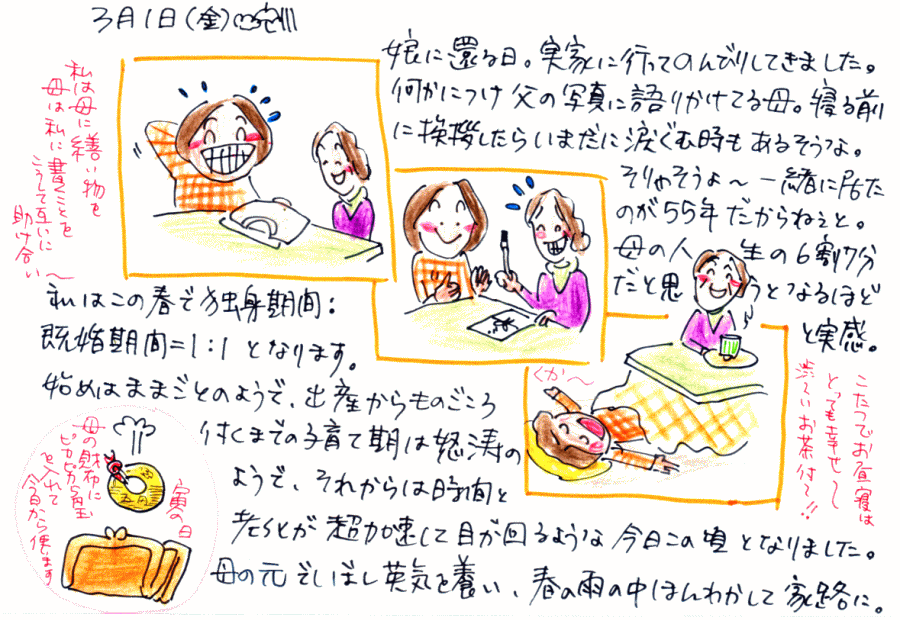 3月1日(金)
娘に還る日。実家に行ってのんびりしてきました。
何かにつけ父の写真に語りかけてる母。寝る前
に挨拶したらいまだに涙ぐむ時もあるそうな。
そりゃそうよ〜一緒に居た
のが55年だからねぇと。
母の人生の6割7分
だと思うとなるほど
と実感。
私は母に繕い物を
母は私に書くことを
こうして互いに
助け合い〜
私はこの春で独身期間:
既婚期間=1:1となります。
始めはままごとのようで、出産からものごころ
付くまでの子育て期は怒涛の
ようで、それからは時間と
老いとが超加速して目が回るような今日この頃となりました。
母の元でしばし英気を養い、春の雨の中ほんわかして家路に。
くか〜
こたつでお昼寝は
とっても幸せ〜
渋〜いお茶付で!!
寅の日
母の財布に
ピカピカ5円玉
を入れて
今日から使います
五円